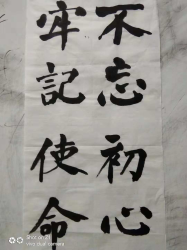 不忘初心
牢記使命
Shot on